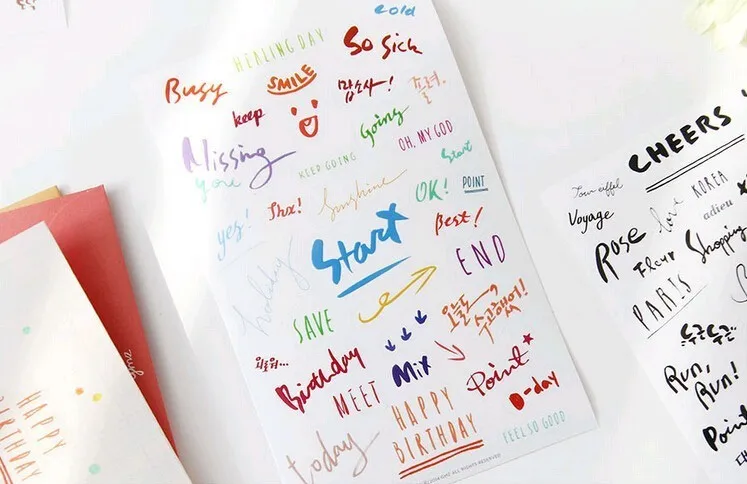 cold
HEALING DAY
So Sick
Busy
SMILE
keep
맙소사!
Going
OH, MY GOD
Missing
you
KEEP GOING
Start
yes!
Thx!
Sunshine
OK!
POINT
Start
Best!
holiday
END
SAVE
오늘도
수고했어!
Birthday
Mix
MEET
Point
D-day
HAPPY
BIRTHDAY
FEEL SO GOOD
today
CHEERS
Tour eiffel
Voyage
love
KOREA
adieu
Rose
Fleur
Shopping
PARIS
두근두근
Run,
Run!
Point
HAPPY
BIRTHDAY